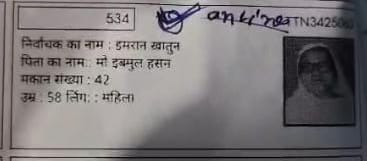 534
निर्वाचक का नाम : इमरान खातुन
पिता का नाम:: मो इबमुल हसन
मकान संख्या : 42
उम्र : 58 लिंग: : महिला